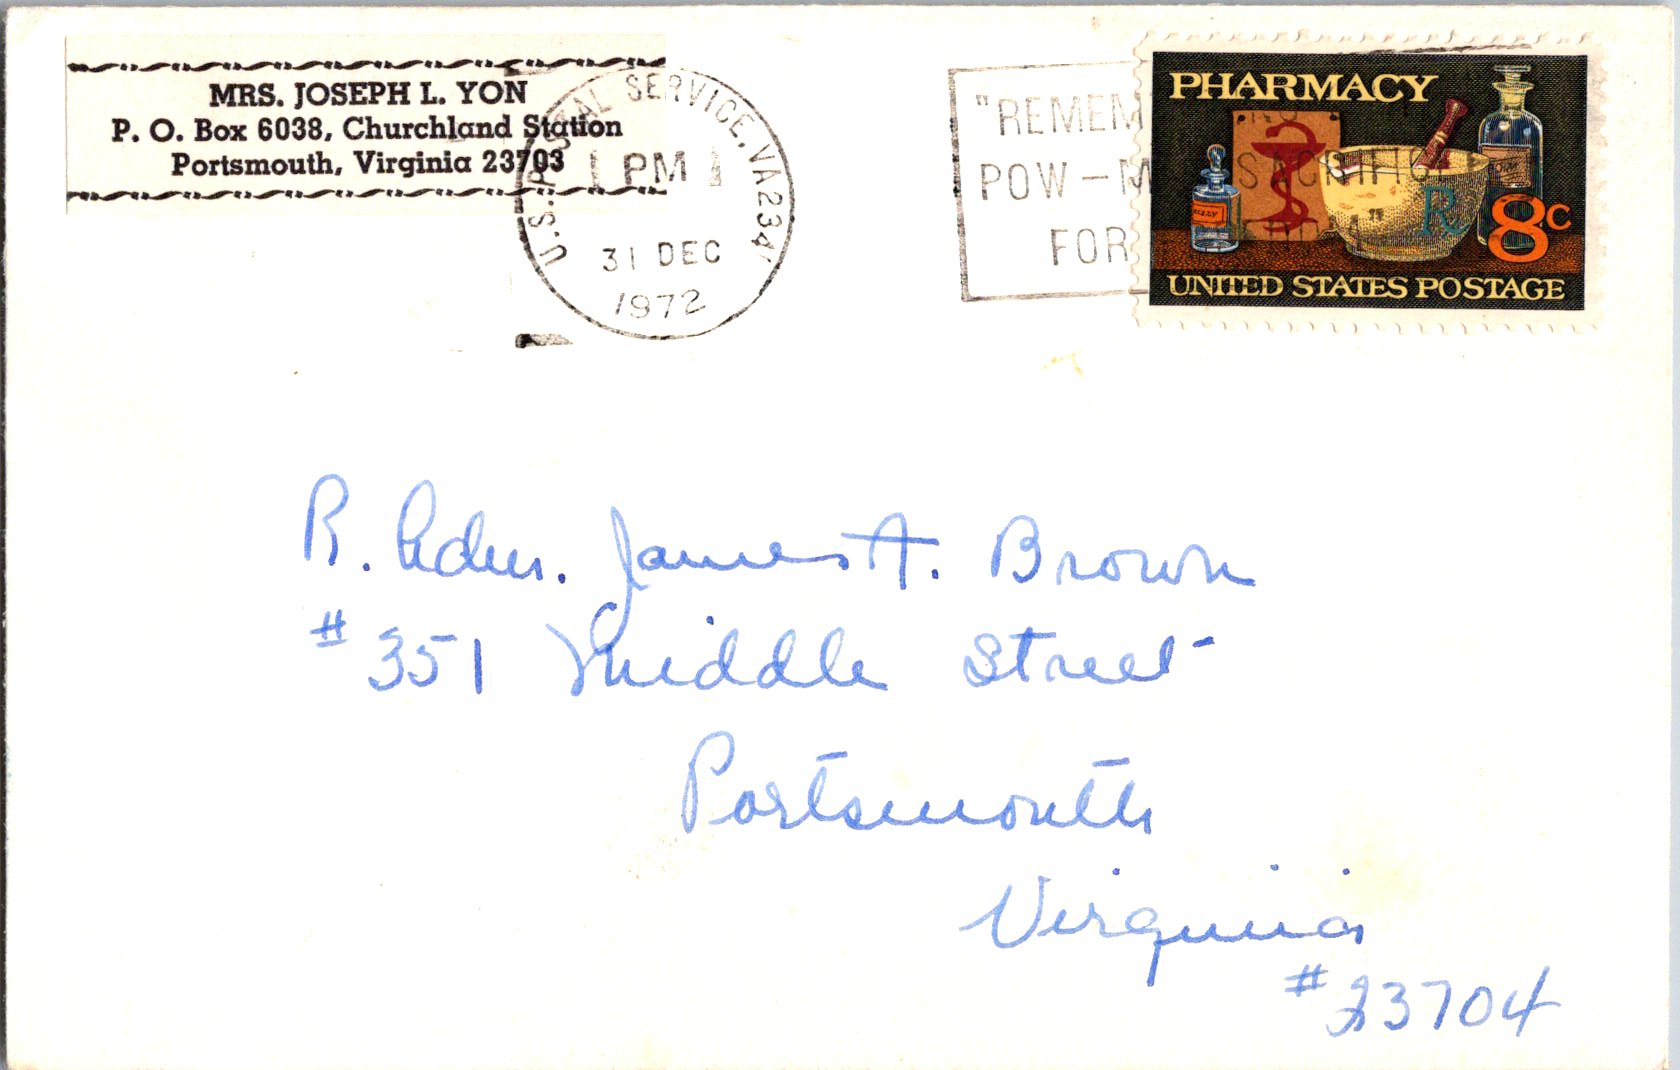 MRS. JOSEPH L. YON
P. O. Box 6038, Churchland Station
Portsmouth, Virginia 23703
U.S. POSTAL SERVICE, VA 234
PM
31 DEC
1972
"REMEM
POW-M
SACRIFIC
FOR
PHARMACY
Rx
8c
UNITED STATES POSTAGE
R. Adm. James A. Brown
# 351 Middle Street
Portsmouth
Virginia
# 23704